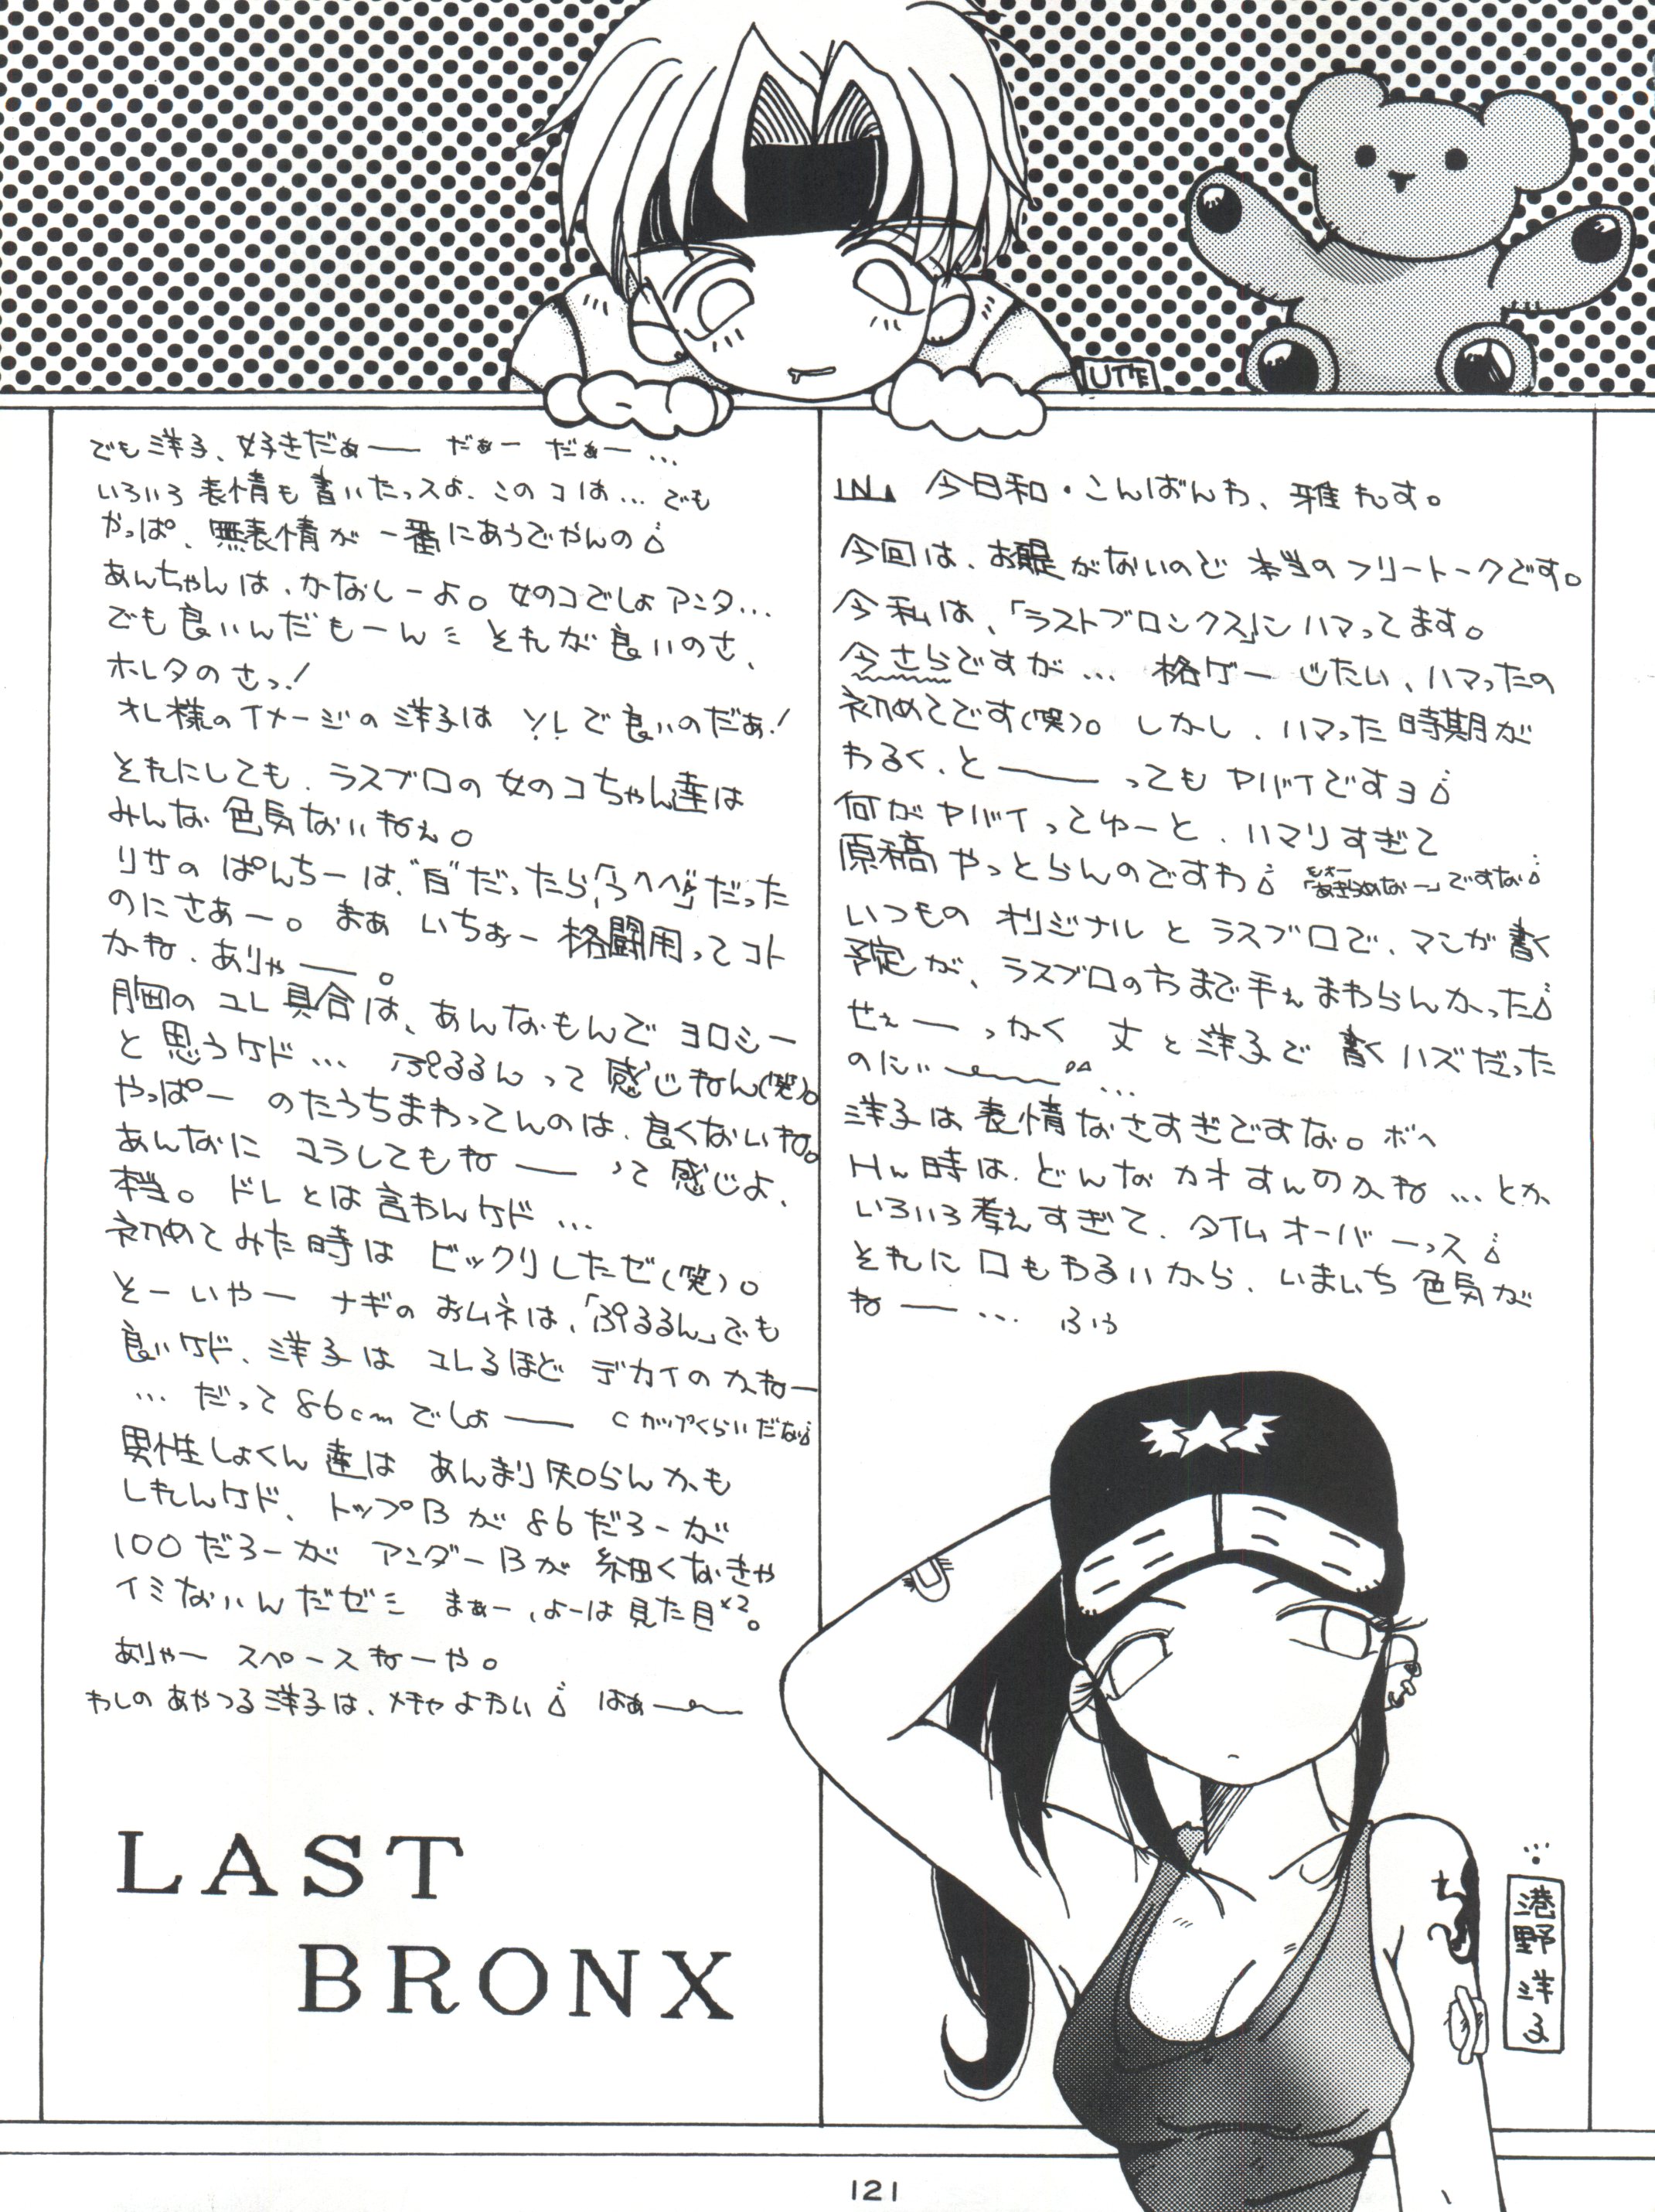 UT作
IN 今日和・こんばんわ、雅れす。
今回は、お題がないので 本当のフリートークです。
今私は、「ラストブロンクス」にハマってます。
今さらですが… 格ゲー じたい、ハマったの
初めてです(笑)。しかし、ハマった時期が
わるく、と――ってもヤバイですヨ
何がヤバイってゆーと、ハマリすぎて
原稿やっとらんのですわ 「もォーあきらめなー」ですな
いつもの オリジナル と ラスブロで、マンガ書く
予定が、ラスブロの方まで手ェまわらんかった
せぇーっかく 丈 と洋子で 書くハズだった
のにぃぃ〜〜…
洋子は表情なさすぎですな。ボヘ
Hん時は、どんなカオすんのかね…とか
いろいろ考えすぎて、タイムオーバーっス
それに口もわるいから、いまいち色気が
ねー… ふう
でも洋子、好きだぁー だぁー だぁー…
いろいろ表情も書いたっスよ、このコは…でも
やっぱ、無表情が一番にあうでやんの
あんちゃんは、かなしーよ。女のコでしょアンタ…
でも良いんだもーん それが良いのさ、
ホレタのさっ!
オレ様のイメージの洋子は ソレで良いのだぁ!
それにしても、ラスブロの女のコちゃん達は
みんな色気ないねぇ。
リサのぱんちーは、"白"だったら「うへへ」だった
のにさぁー。まぁ いちおー格闘用ってコト
かね、ありゃー。
胸のユレ具合は、あんなもんでヨロシー
と思うケド… ぷるるんって感じねん(笑)。
やっぱー のたうちまわってんのは、良くないね。
あんなに ユラしてもねーって感じよ、
本当。ドレとは言わんケド…
初めてみた時は ビックリしたゼ(笑)。
そーいやー ナギのおムネは、「ぷるるん」でも
良いケド、洋子は ユレるほど デカイのかねー
…だって86cmでしょー Cカップくらいだな
男性しょくん達は あんまり知らんかも
しれんケド、トップBが86だろーが
100だろーが アンダーBが細くなきゃ
イミないんだゼ まぁー、よーは見た目×2。
ありゃー スペースねーや。
わしのあやつる洋子は、メチャよわい はぁー
LAST
BRONX
港野洋子
121